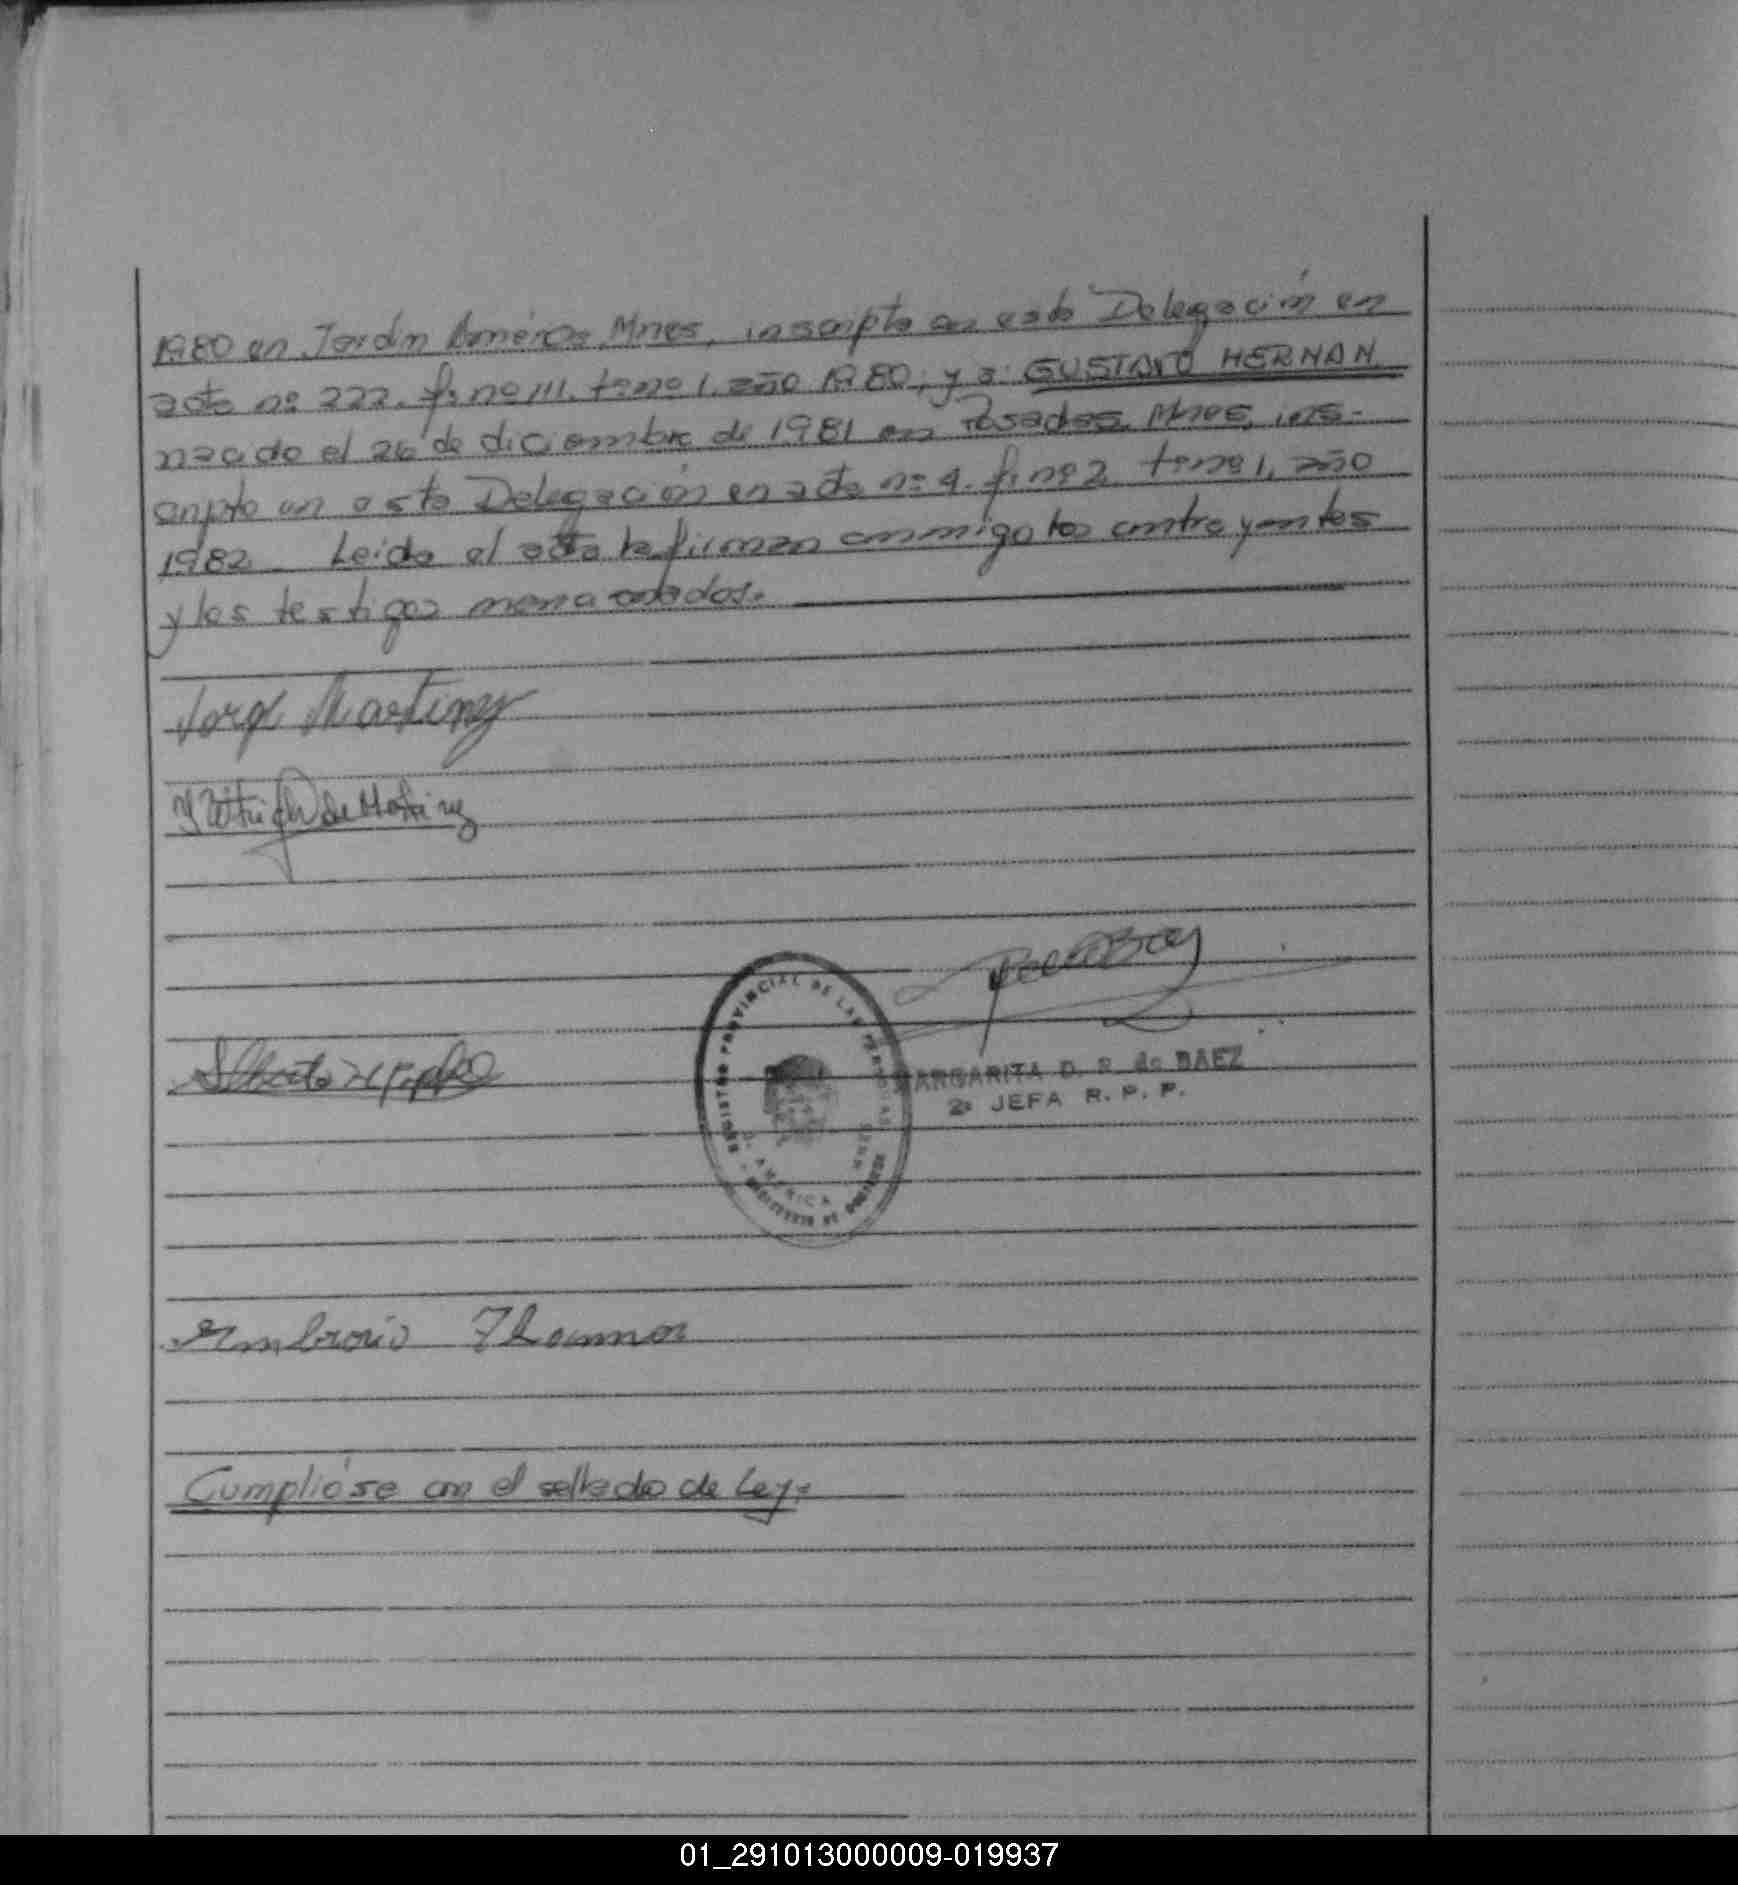 1980 en Jardín América, Mnes, inscripta en esta Delegación en
acta nº 222. fº nº 111. tº nº 1. año 1980; y a: GUSTAVO HERNAN
nacido el 26 de diciembre de 1981 en Posadas, Mnes, ins-
cripto en esta Delegación en acta nº 4. fº nº 2 tº nº 1, año
1982. Leida el acta la firman conmigo los contrayentes
y los testigos mencionados.
Jorge Martinez
de Martinez
REGISTRO PROVINCIAL DE LAS PERSONAS
J. AMERICA
Alberto
MARGARITA D. R. de BAEZ
2º JEFA R. P. P.
Ambrosio
Cumplióse con el sellado de Ley.
01_291013000009-019937